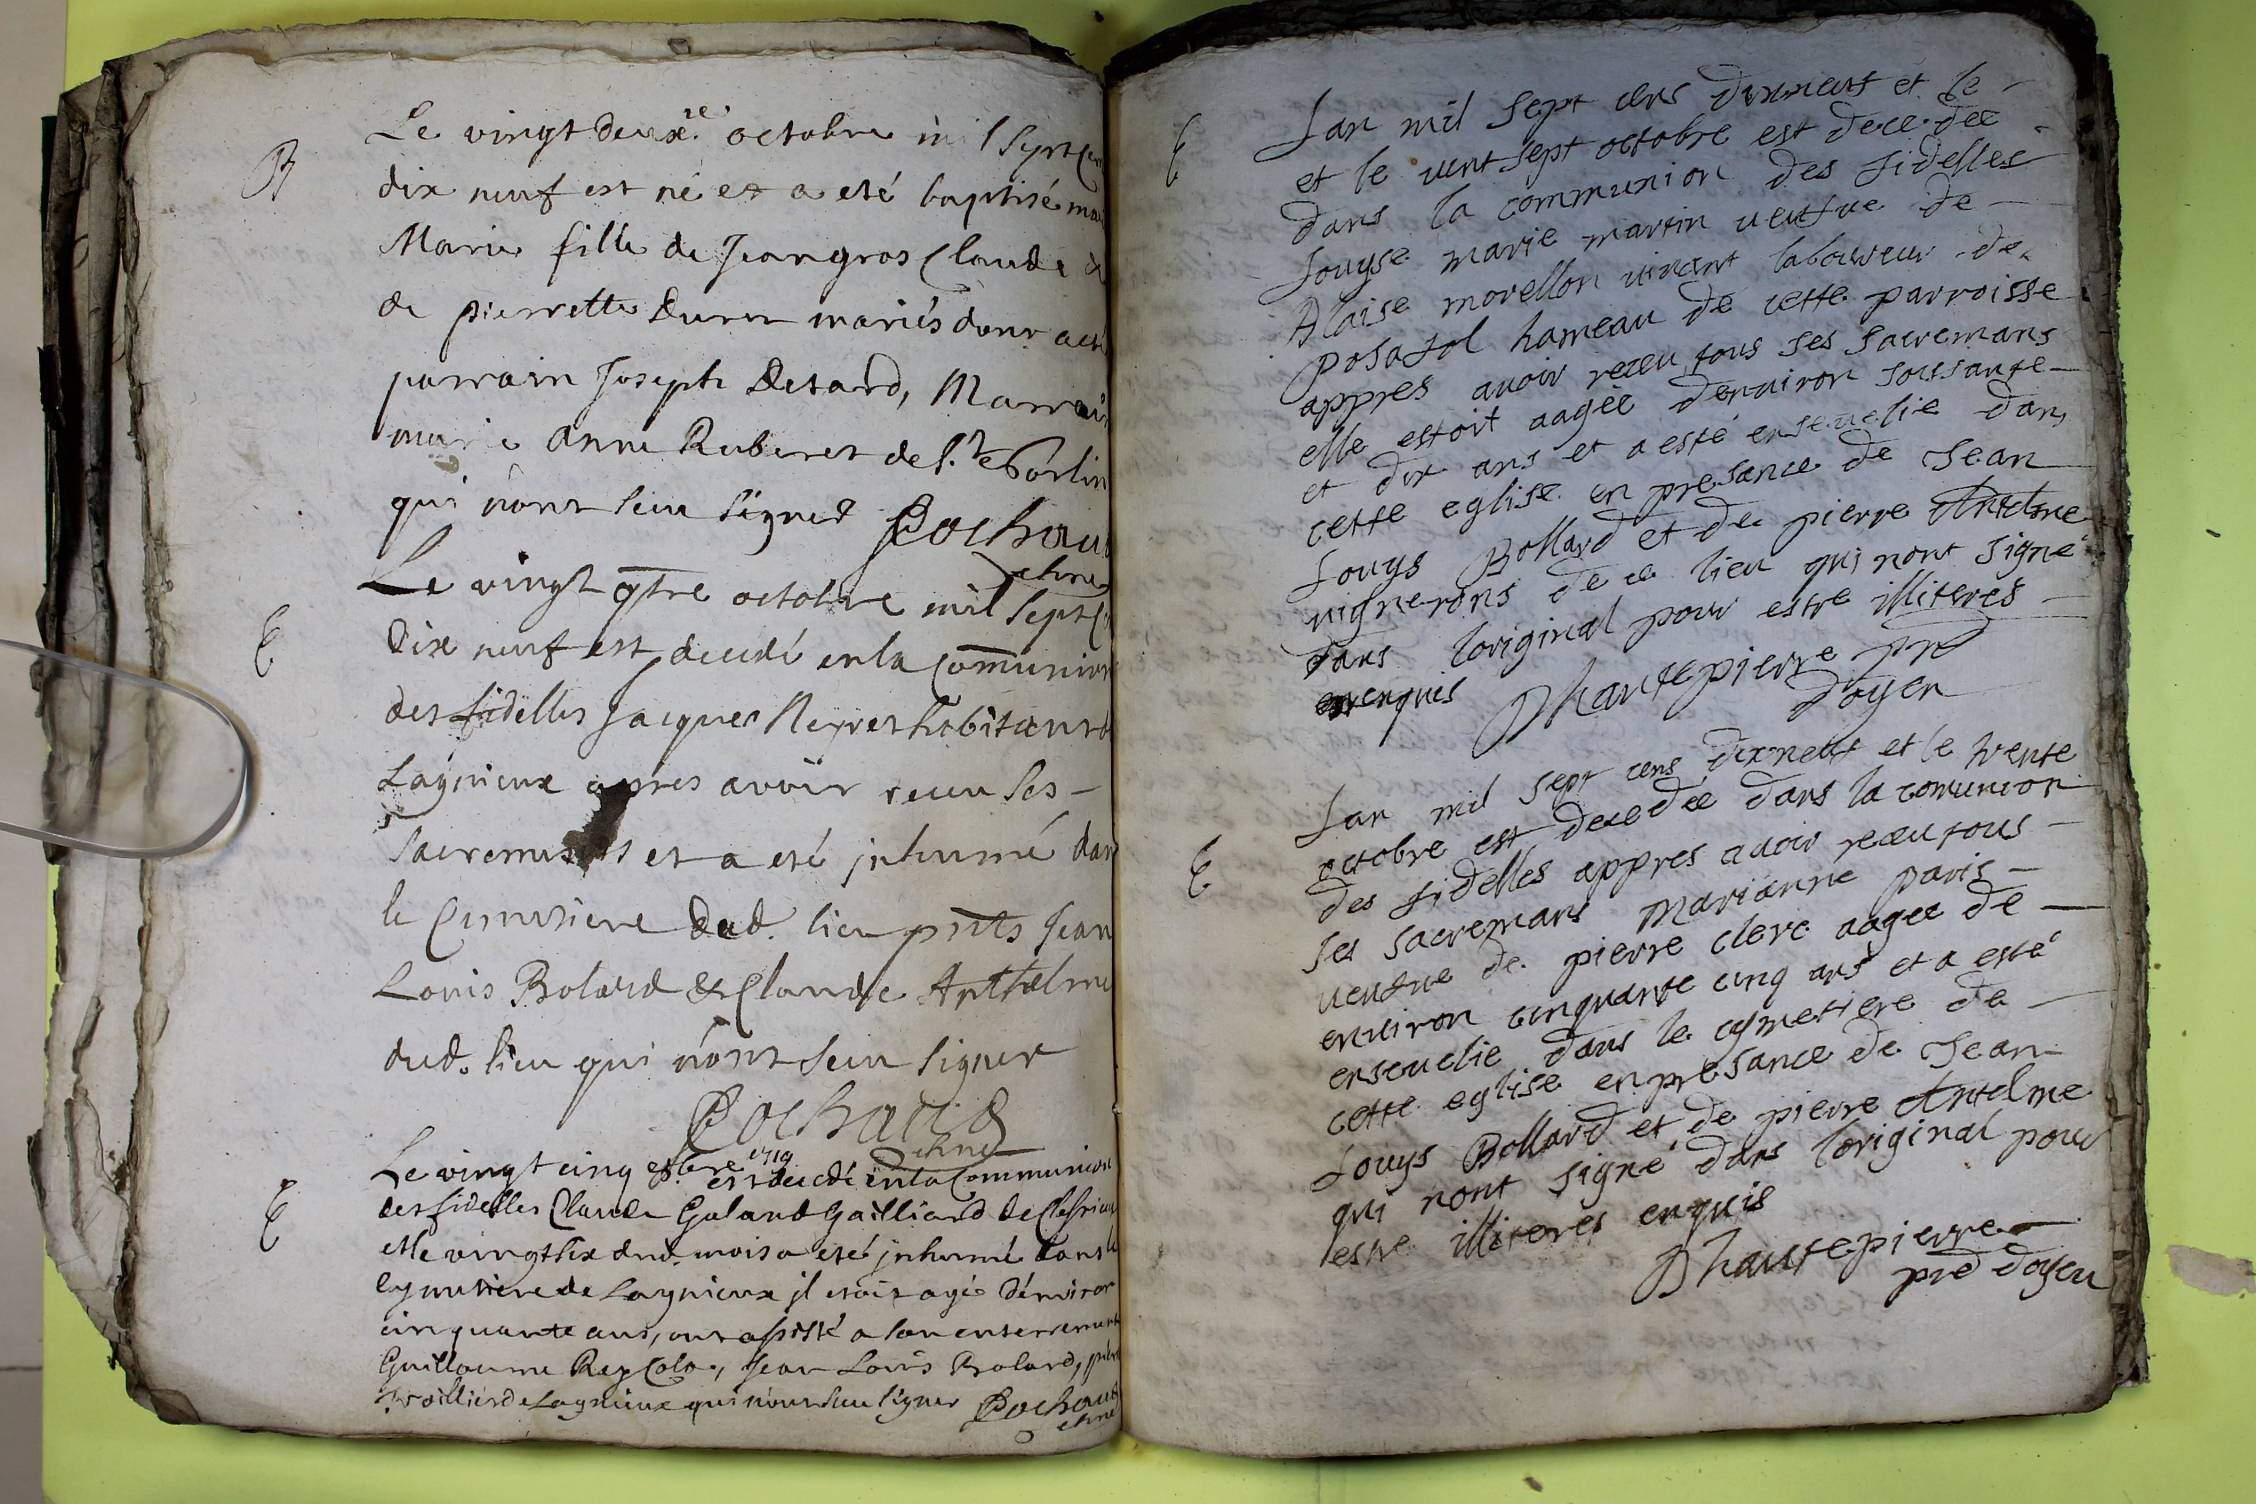 B
Le vingt deuxie. octobre mil Sept Cen
dix neuf est né et a eté baptisé
Marie fille de Jean gros Claude &
de pierrette Duret mariés dont a eté
parrain Joseph Desard, Marrain
marie Anne Ruberet de St.
qui n'ont Sceu Signer Cochaud
chne
E
Le vingt qtre octobre mil Sept Ce
Dix neuf est decedé en la Communion
des fidelles Jacques Neyret habitant
Lagnieux apres avoir receu Ses -
Sacrements et a eté jnhumé dan
le Cimetiere dud. lieu pnts Jean
Louis Bolard & Claude Anthelme
dud. lieu qui n'ont Sceu Signer
Cochaud
chne
E
Le vingt cinq 8bre 1719 est decedé en la Communion
des fidelles Claude Galand Gailliard de
et le vingt six dud. mois a eté jnhumé dans le
Cymetiere de Lagnieux jl etoit agé d'environ
cinquante ans, ont assisté a son enterrement
Guillaume Rey Jean Louis Bolard,
de Lagnieux qui n'ont Sceu Signer Cochaud
chne
E
Lan mil Sept cens dixneuf et le -
et le vent Sept octobre est decedée
dans la communion des fidelles
Louyse marie martin veufve de -
Blaise morellon vivant laboureur de
posafol hameau de cette parroisse
appres avoir receu tous ses Sacremans
elle estoit aagée denviron soissante -
et dix ans et a esté ensevelie dans
cette eglise en presance de Jean
Louys Bollard et de pierre Antelme
vignerons de ce lieu qui nont signé
dans loriginal pour estre illiteres -
enquis Dhautepierre pre
doyen
E
Lan mil Sept cens dixneuf et le trente
octobre est decedée dans la comunion
des fidelles appres avoir receu tous -
ses sacremans Marianne paris -
veufve de pierre clerc aagée de -
environ cinquante cinq ans et a esté
ensevelie dans le cymetiere de -
cette eglise en presance de Jean
Louys Bollard et de pierre Antelme
qui nont signé dans loriginal pour
estre illiteres enquis
Dhautepierre
pre doyen